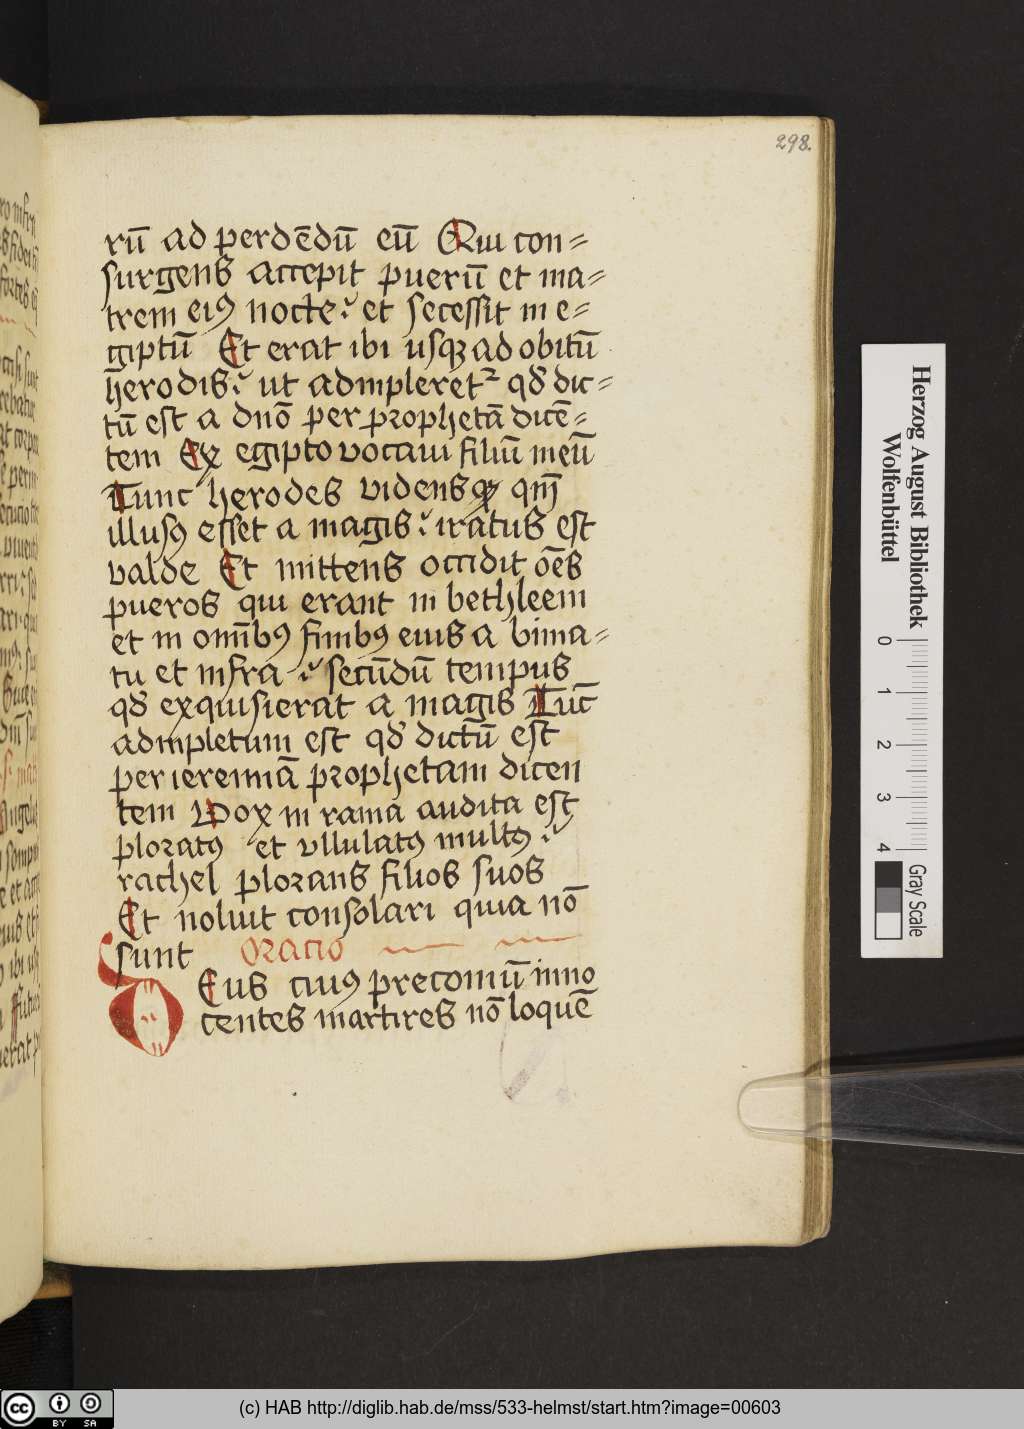 298.
rū ad perdēdū eū Qui con=
surgens accepit puerū et ma=
trem ei9 nocte et secessit in e=
giptū Et erat ibi usqꝫ ad obitū
herodis ut adinpleret2 qd dic=
tū est a dnō per prophetā dicē=
tem Ex egipto vocaui filiū meū
Tunc herodes videns qm̄
illus9 esset a magis iratus est
valde Et mittens occidit oēs
pueros qui erant in bethleem
et in omīb9 finib9 eius a bima=
tu et infra secūdū tempus
qd exquisierat a magis Tūc
adinpletum est qd dictū est
per ieremiā prophetam dicen
tem Vox in rama audita est
plorat9 et vllulat9 mult9
rachel plorans filios suos
Et noluit consolari quia nō
sunt Oracio
Deus cui9 preconiū inno
centes martires nō loquē
Herzog August Bibliothek
Wolfenbüttel
0 1 2 3 4
Gray Scale
cc BY SA
(c) HAB http://diglib.hab.de/mss/533-helmst/start.htm?image=00603